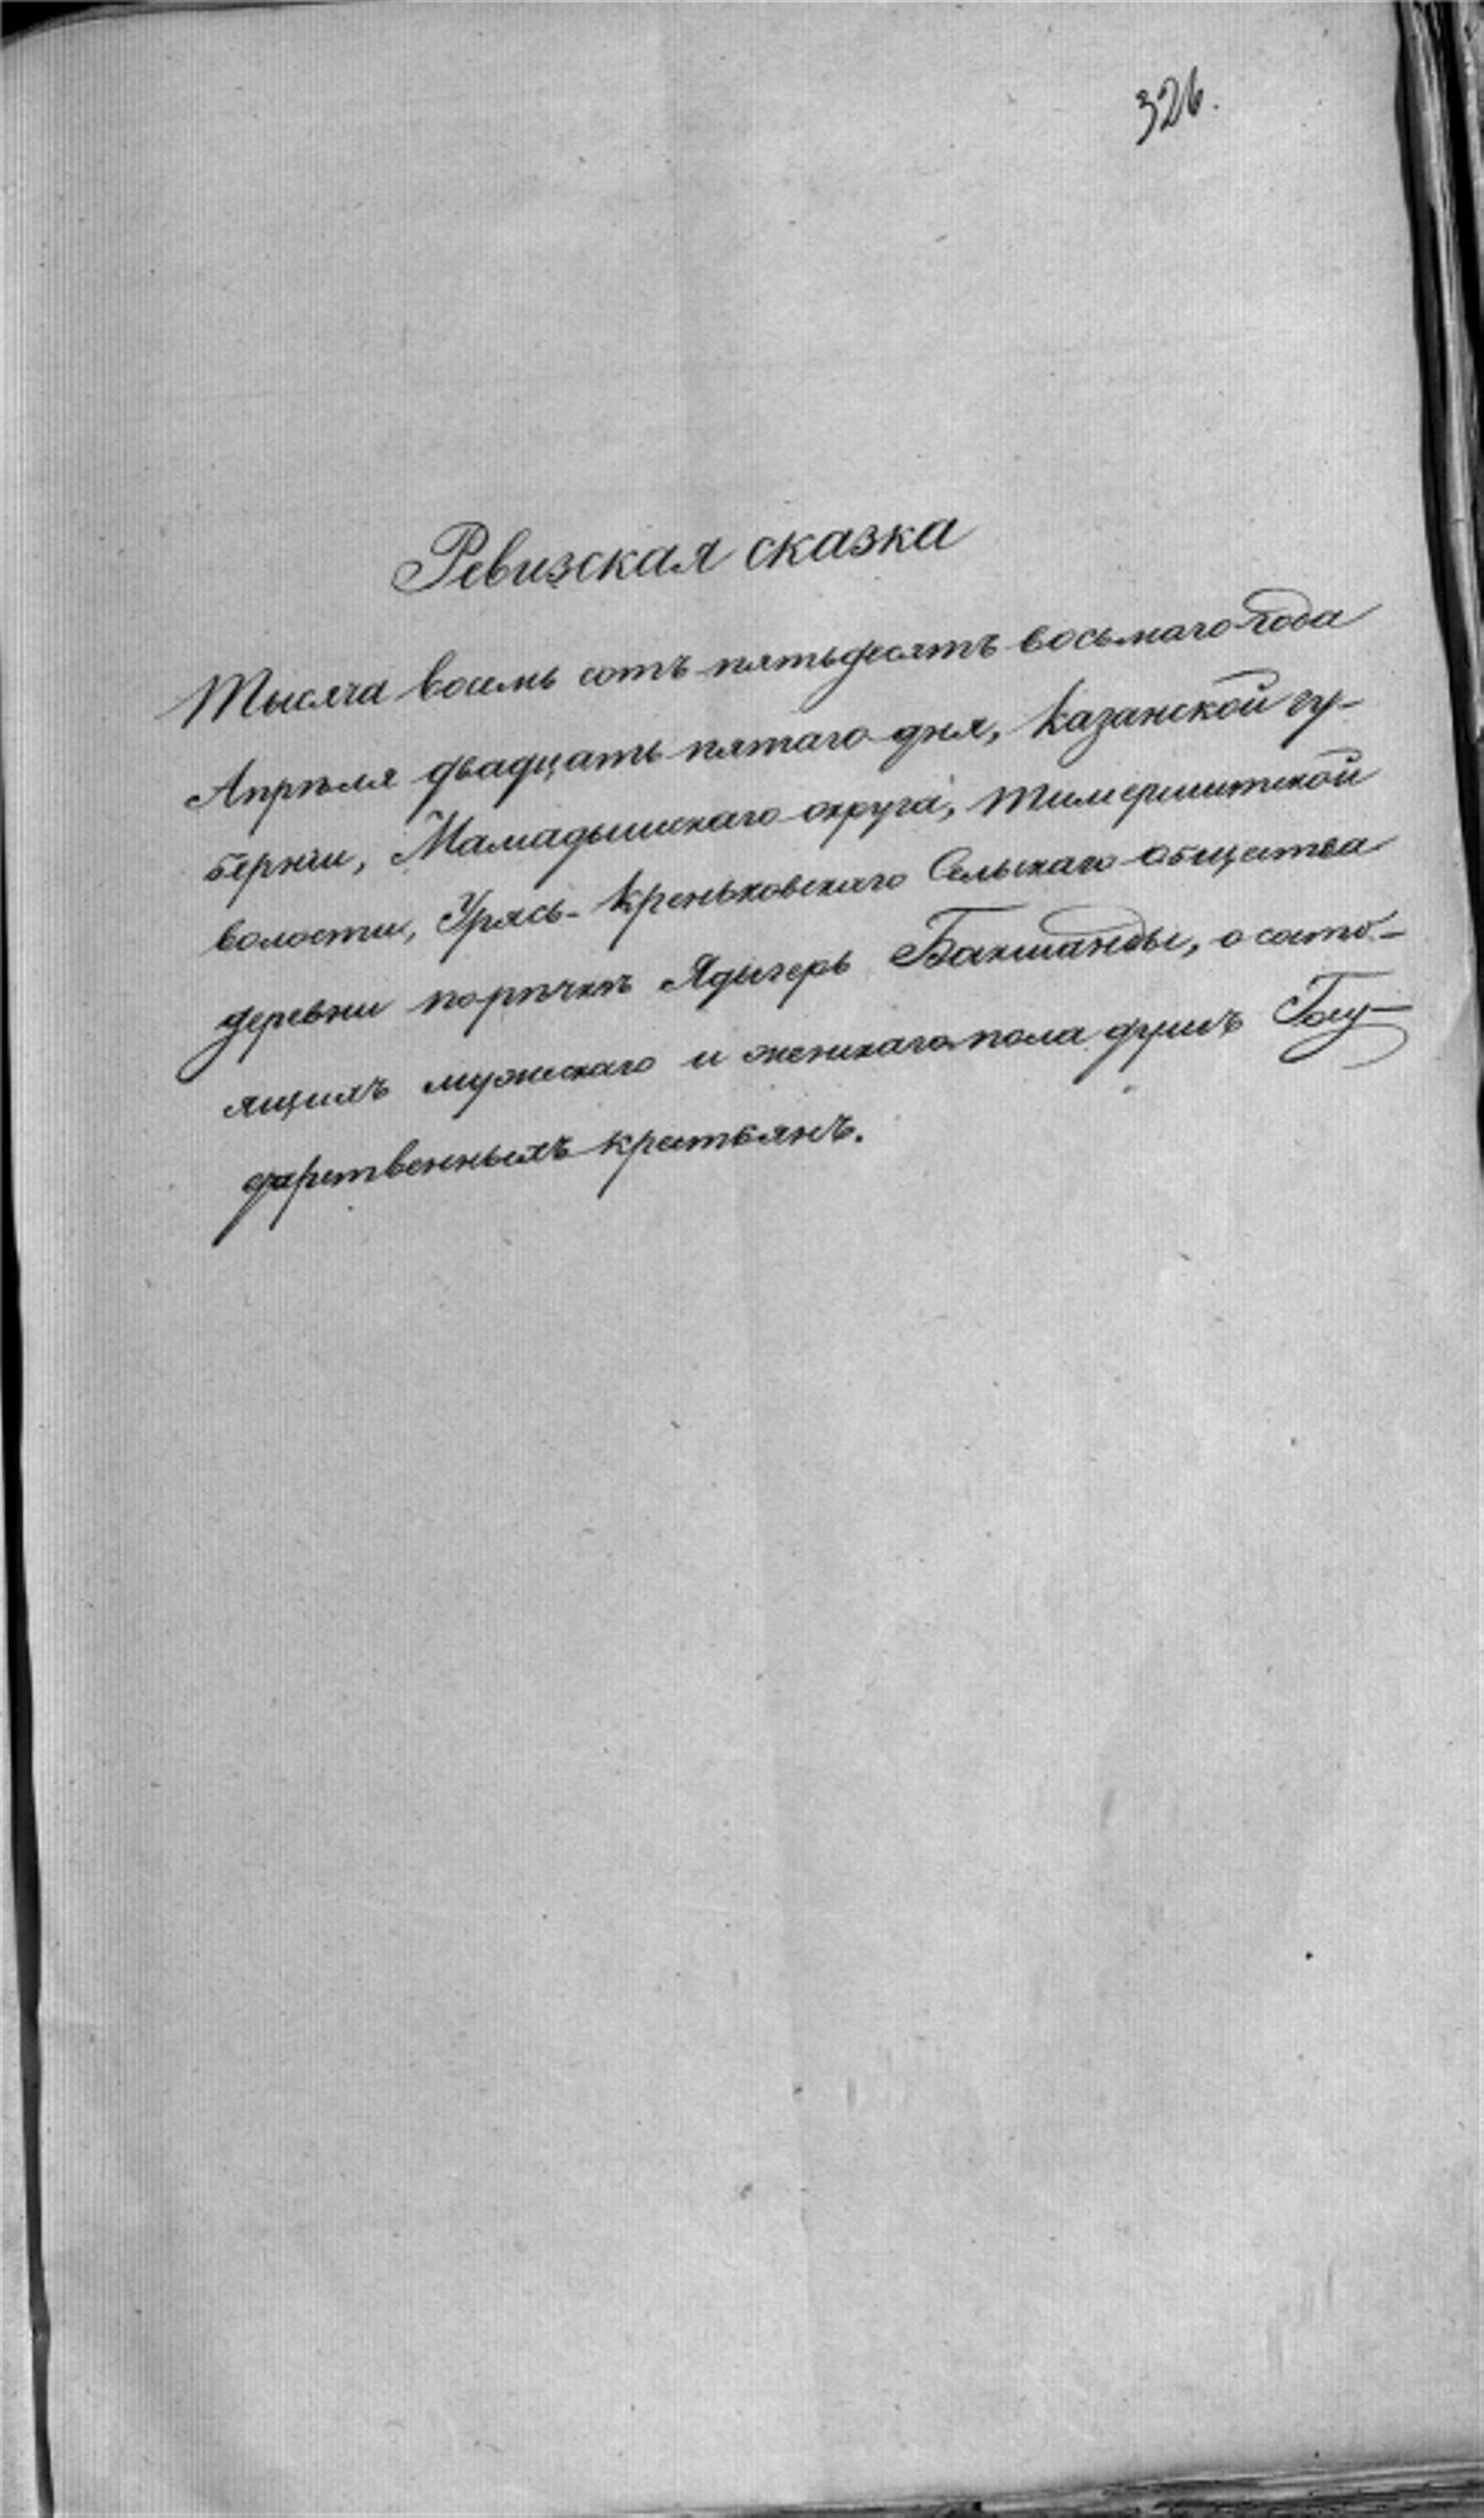 326.
Ревизская сказка
Тысяча восемь сотъ пятьдесятъ восьмаго года
Апрѣля двадцать пятаго дня, Казанской гу-
берніи, Мамадышскаго округа, Тимершитской
волости, Урясь-Креньковскаго Сельскаго общества
деревни порѣчкѣ Ядыгерь Бакшанды, о состо-
ящихъ мужескаго и женскаго пола душъ Госу-
дарственныхъ крестьянъ.